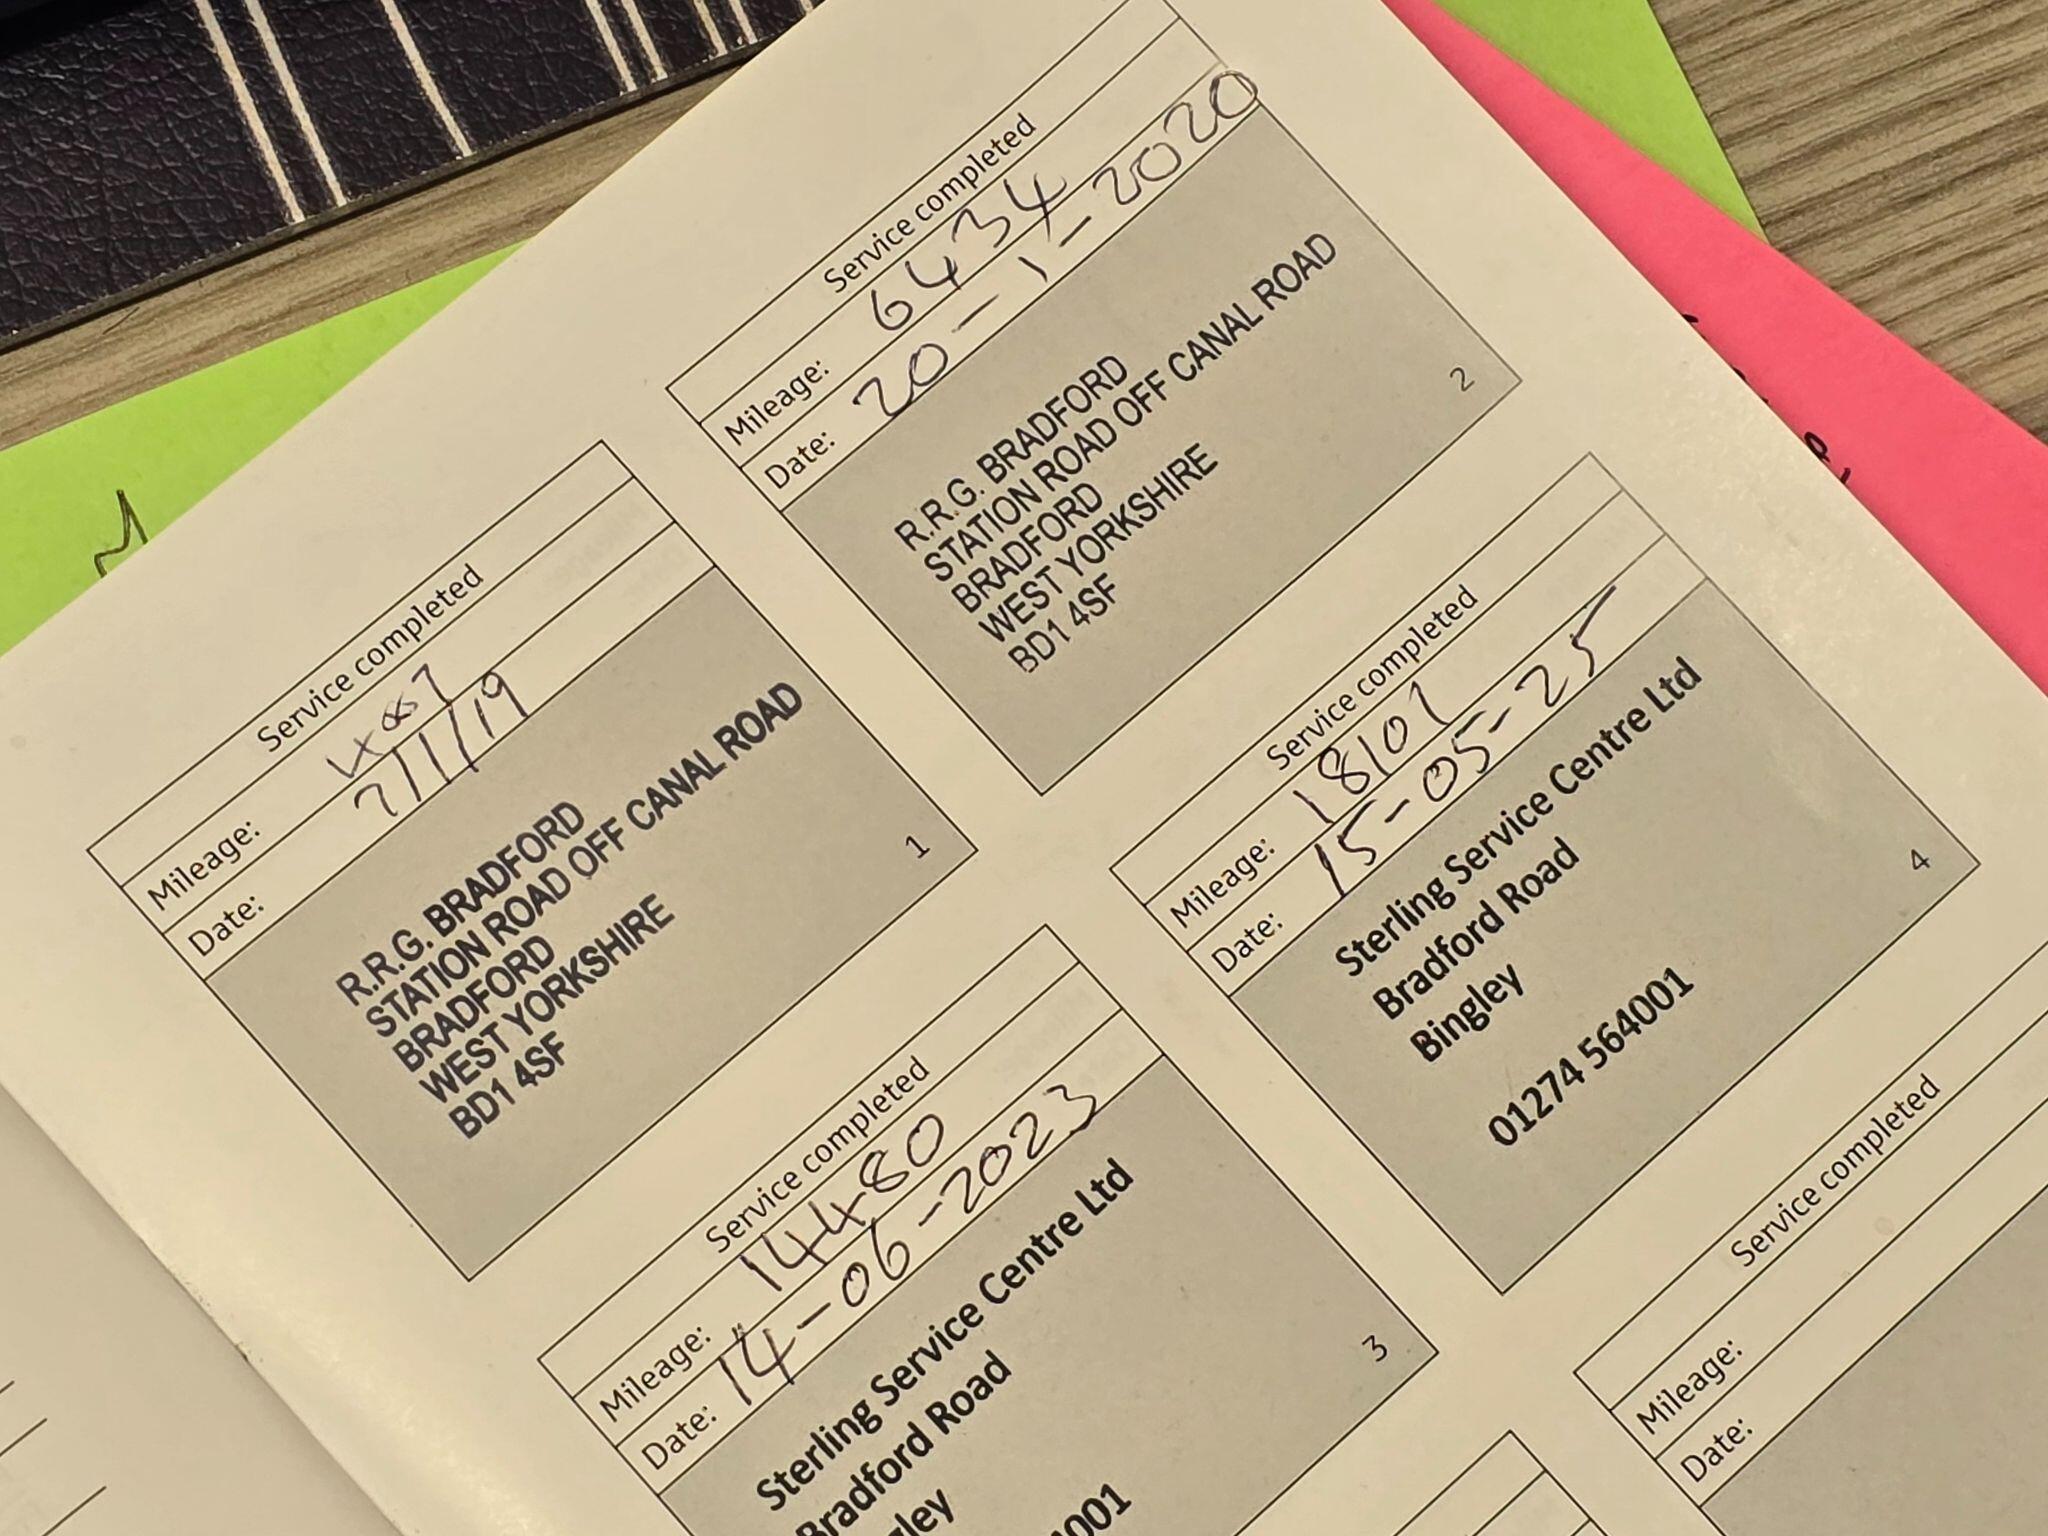 Service completed
Mileage:
Date: 7/1/19
R.R.G. BRADFORD
STATION ROAD OFF CANAL ROAD
BRADFORD
WEST YORKSHIRE
BD1 4SF
1
Service completed
Mileage: 6434
Date: 20-1-2020
R.R.G. BRADFORD
STATION ROAD OFF CANAL ROAD
BRADFORD
WEST YORKSHIRE
BD1 4SF
2
Service completed
Mileage: 14480
Date: 14-06-2023
Sterling Service Centre Ltd
Bradford Road
gley
001
3
Service completed
Mileage: 18101
Date: 15-05-25
Sterling Service Centre Ltd
Bradford Road
Bingley
01274 564001
4
Service completed
Mileage:
Date: